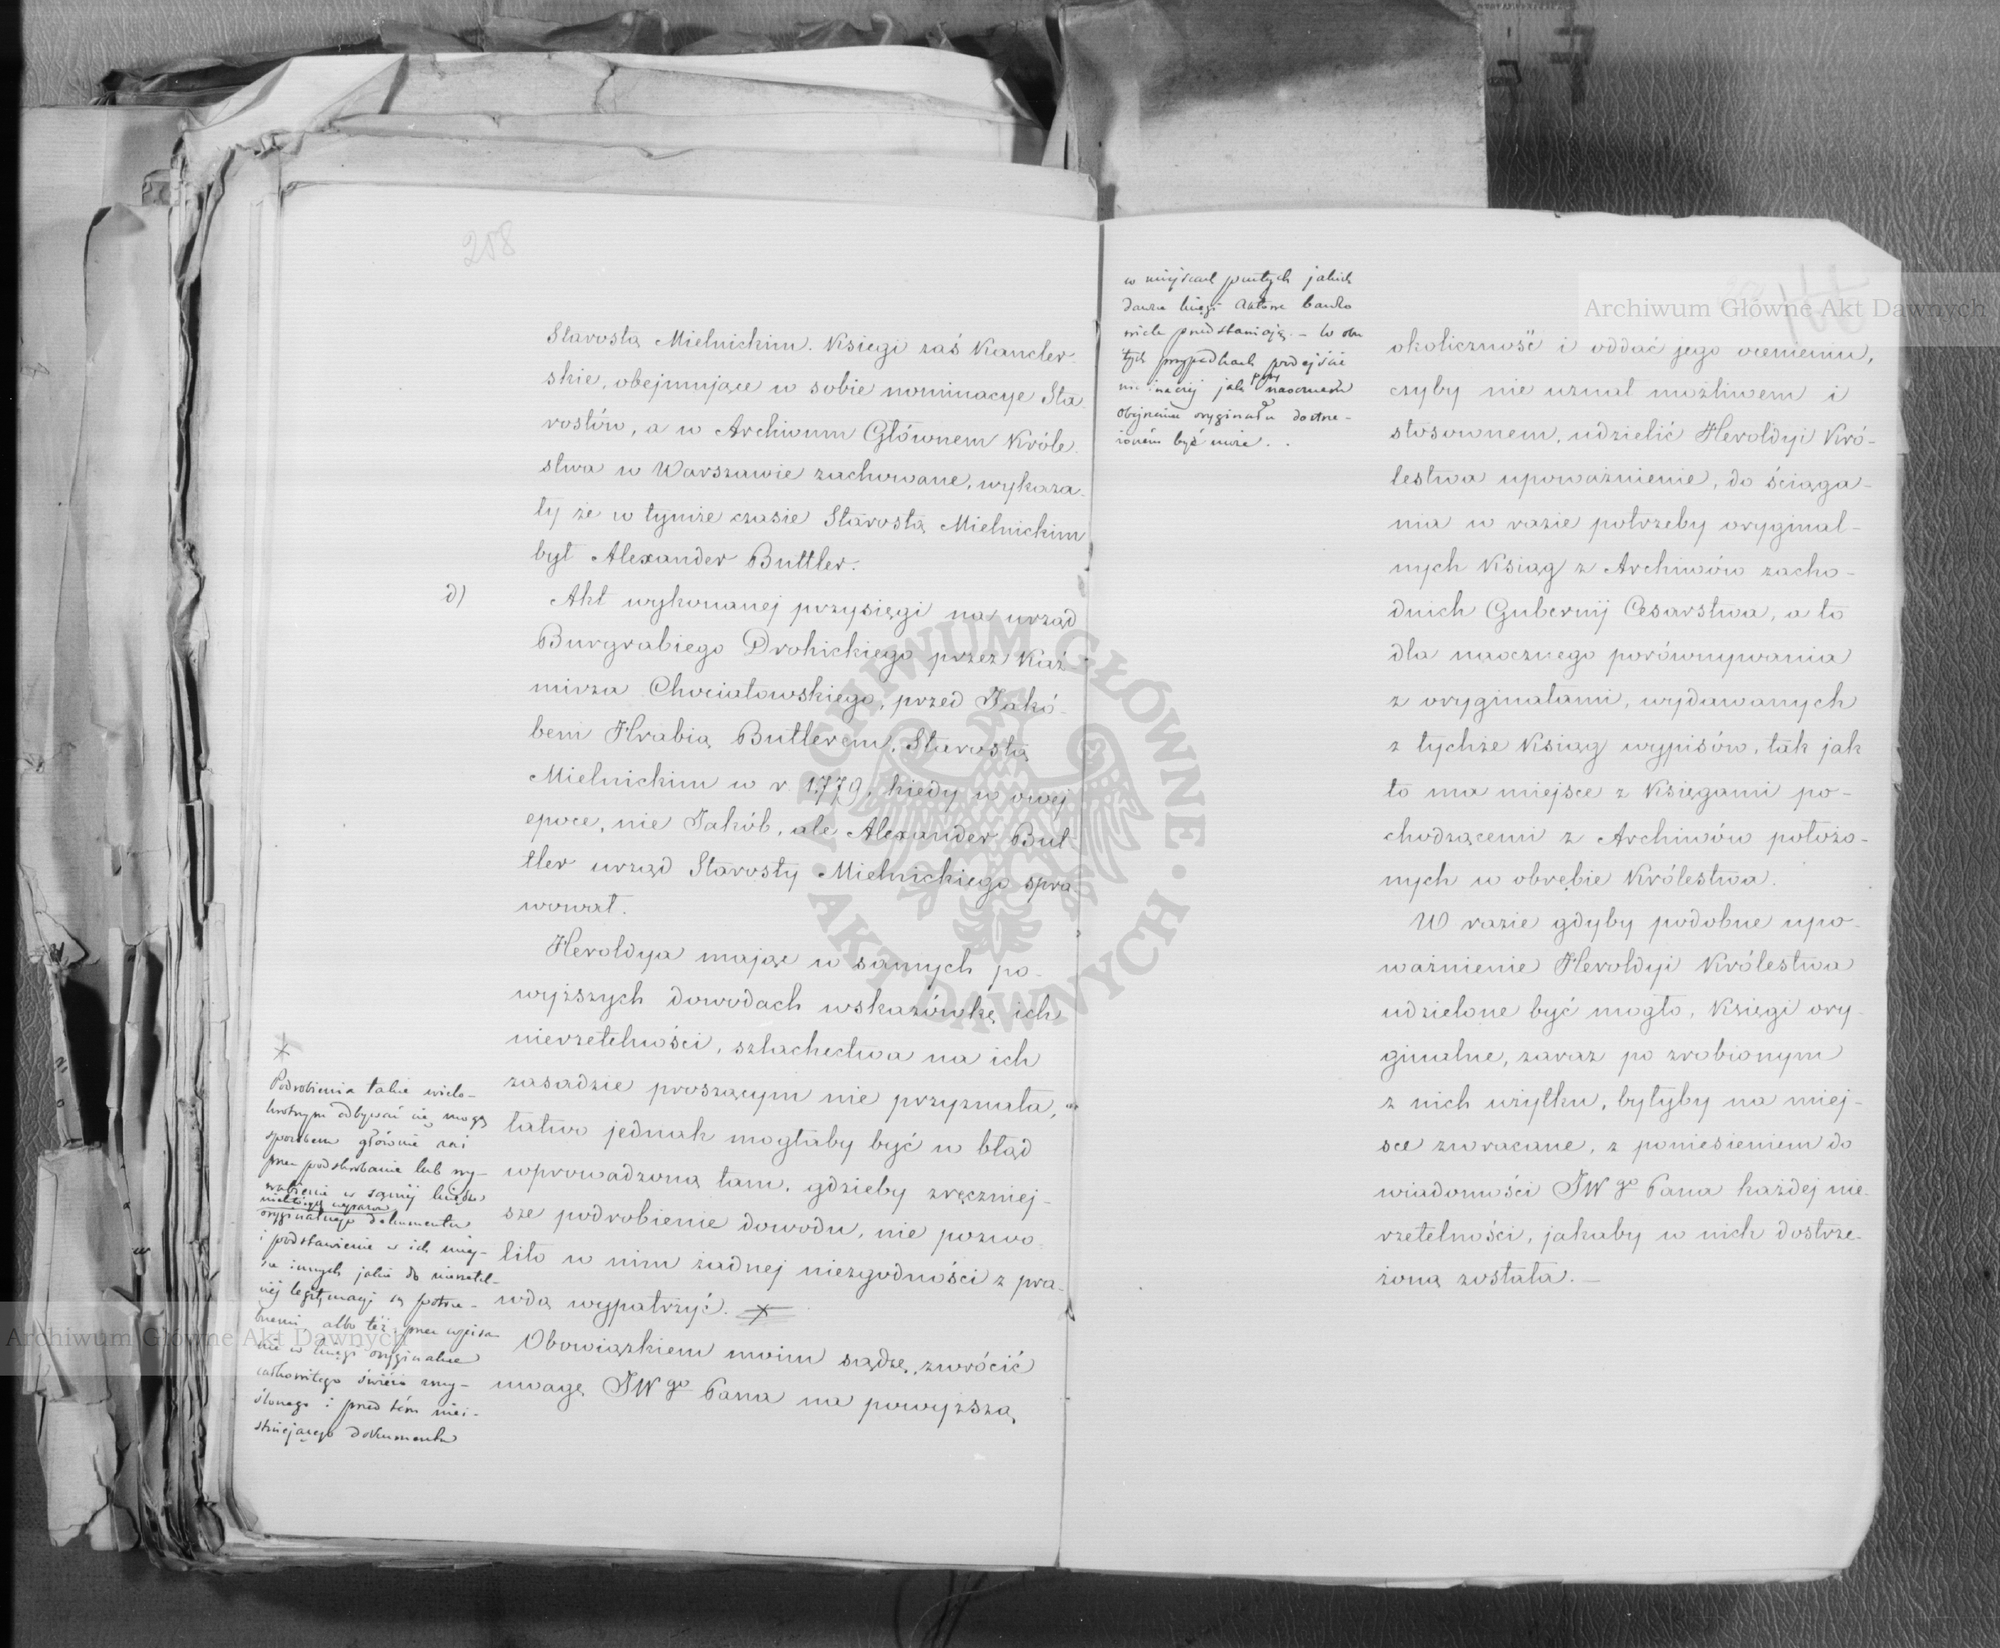 208
Starostą Mielnickim. Księgi zaś Kancler-
skie, obejmujące w sobie nominacye Sta-
rostów, a w Archiwum Głównem Króle-
stwa w Warszawie zachowane, wykaza-
ły że w tymże czasie Starostą Mielnickim
był Alexander Buttler.
d) Akt wykonanej przysięgi na urząd
Burgrabiego Drohickiego przez Kaź-
mirza Chociatowskiego, przed Jakó-
bem Hrabią Butlerem, Starostą
Mielnickim w r. 1779, kiedy w owej
epoce, nie Jakób, ale Alexander But-
tler urząd Starosty Mielnickiego spra
wował.
Heroldya mając w samych po-
wyższych dowodach wskazówkę ich
nierzetelności, szlachectwa na ich
zasadzie proszącym nie przyznała,
łatwo jednak mogłaby być w błąd
wprowadzoną tam, gdzieby zręczniej-
sze podrobienie dowodu, nie pozwo-
liło w nim żadnej niezgodności z pra-
wdą wypatrzyć. x
Obowiązkiem moim sądzę, zwrócić
uwagę JWgo Pana na powyższą
x
Podrobienia takie wielo-
krotnym odbywać się mogą
sposobem głównie zaś
przez podskrobanie lub wy-
wabienie w samej księdze
niektórych wyrazów
oryginalnego dokumentu
i podstawienie w ich miej-
sce innych jakie do nierzetel-
nej legitymacyi są potrze-
bnemi albo też przez wpisa-
nie w księgi oryginalne
całkowitego świeżo zmy-
ślonego i przed tém nie-
istniejącego dokumentu
w miejscach pustych jakich
dawne księgi Aktowe bardzo
wiele przedstawiają. – W obu
tych przypadkach podejście
nie inaczej jak przy naocznem
obejrzeniu oryginału dostrze-
żoném być może. .
okoliczność i oddać jego ocenieniu,
czyby nie uznał możliwem i
stosownem, udzielić Heroldyi Kró-
lestwa upoważnienie, do ściąga-
nia w razie potrzeby oryginal-
nych Ksiąg z Archiwów zacho-
dnich Gubernij Cesarstwa, a to
dla naocznego porównywania
z oryginałami, wydawanych
z tychże Ksiąg wypisów, tak jak
to ma miejsce z Księgami po-
chodzącemi z Archiwów położo-
nych w obrębie Królestwa.
W razie gdyby podobne upo-
ważnienie Heroldyi Królestwa
udzielone być mogło, Księgi ory-
ginalne, zaraz po zrobionym
z nich użytku, byłyby na miej-
sce zwracane, z poniesieniem do
wiadomości JWgo Pana każdej nie-
rzetelności, jakaby w nich dostrze-
żoną została. –
Archiwum Główne Akt Dawnych
Archiwum Główne Akt Dawnych
ARCHIWUM GŁÓWNE · AKT DAWNYCH ·